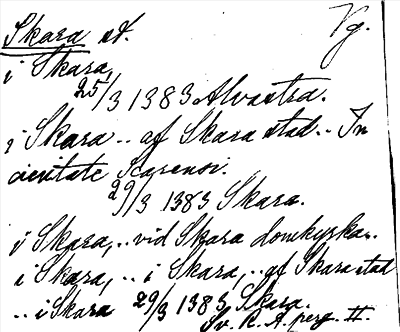 Skara st. Vg.
i Skara,
25/3 1383 Alvastra.
i Skara .. af Skara stad .. In
civitate Scarensi.
29/3 1383 Skara.
i Skara, .. vid Skara domkyrka ..
i Skara, .. i Skara, .. af Skara stad
.. i Skara 29/3 1383 Skara.
Sv. R. A. perg. II.